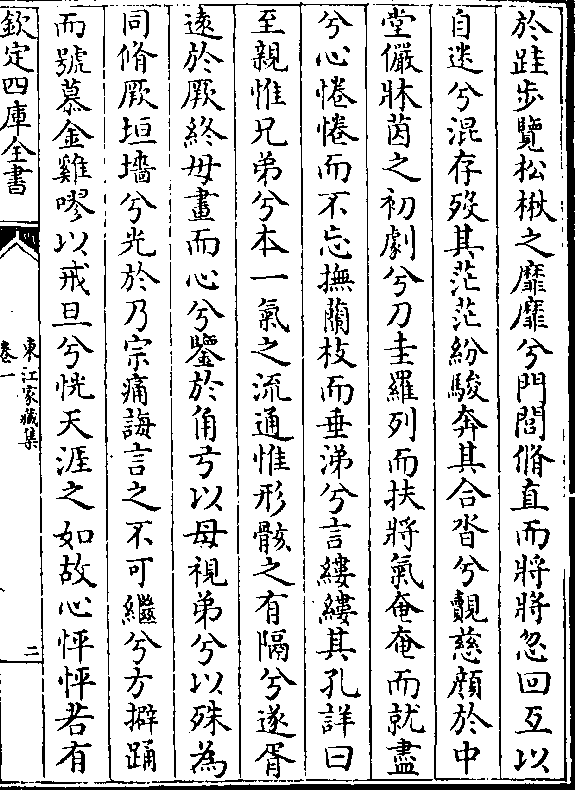 於跬步覽松楸之靡靡兮門閭脩直而將將忽回互以
自迷兮混存歿其茫茫紛駿奔其合沓兮覿慈顔於中
堂儼牀茵之初劇兮刀圭羅列而扶將氣奄奄而就盡
兮心惓惓而不忘撫蘭枝而垂涕兮言縷縷其孔詳曰
至親惟兄弟兮本一氣之流通惟形骸之有隔兮遂胥
遠於厥終毋畫而心兮鑒於角弓以母視弟兮以殊為
同脩厥垣墻兮光於乃宗痛誨言之不可繼兮方擗踊
而號慕金雞嘐以戒旦兮恍天涯之如故心怦怦若有
欽定四庫全書
東江家藏集
卷一
二